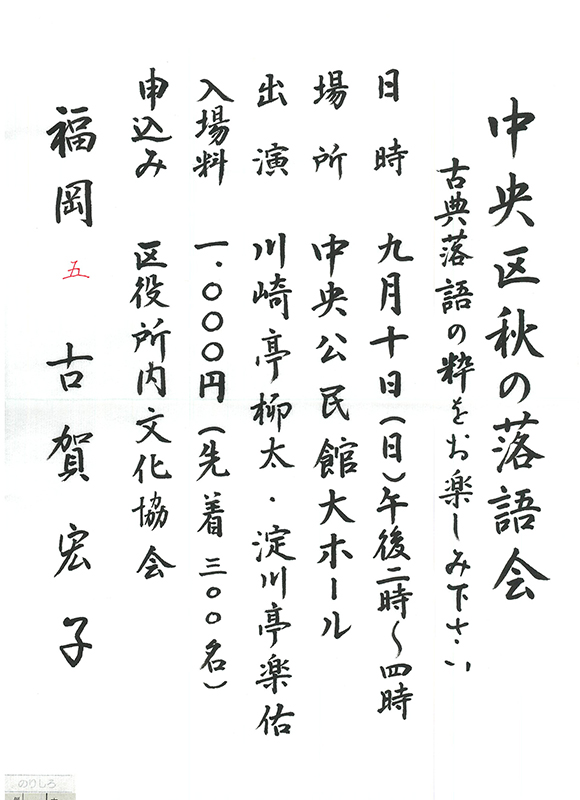 中央区秋の落語会
古典落語の粋をお楽しみ下さい
日時 九月十日(日)午後二時〜四時
場所 中央公民館大ホール
出演 川崎亭柳太・淀川亭楽佑
入場料 一.〇〇〇円(先着三〇〇名)
申込み 区役所内文化協会
福岡 五 古賀宏子
のりしろ